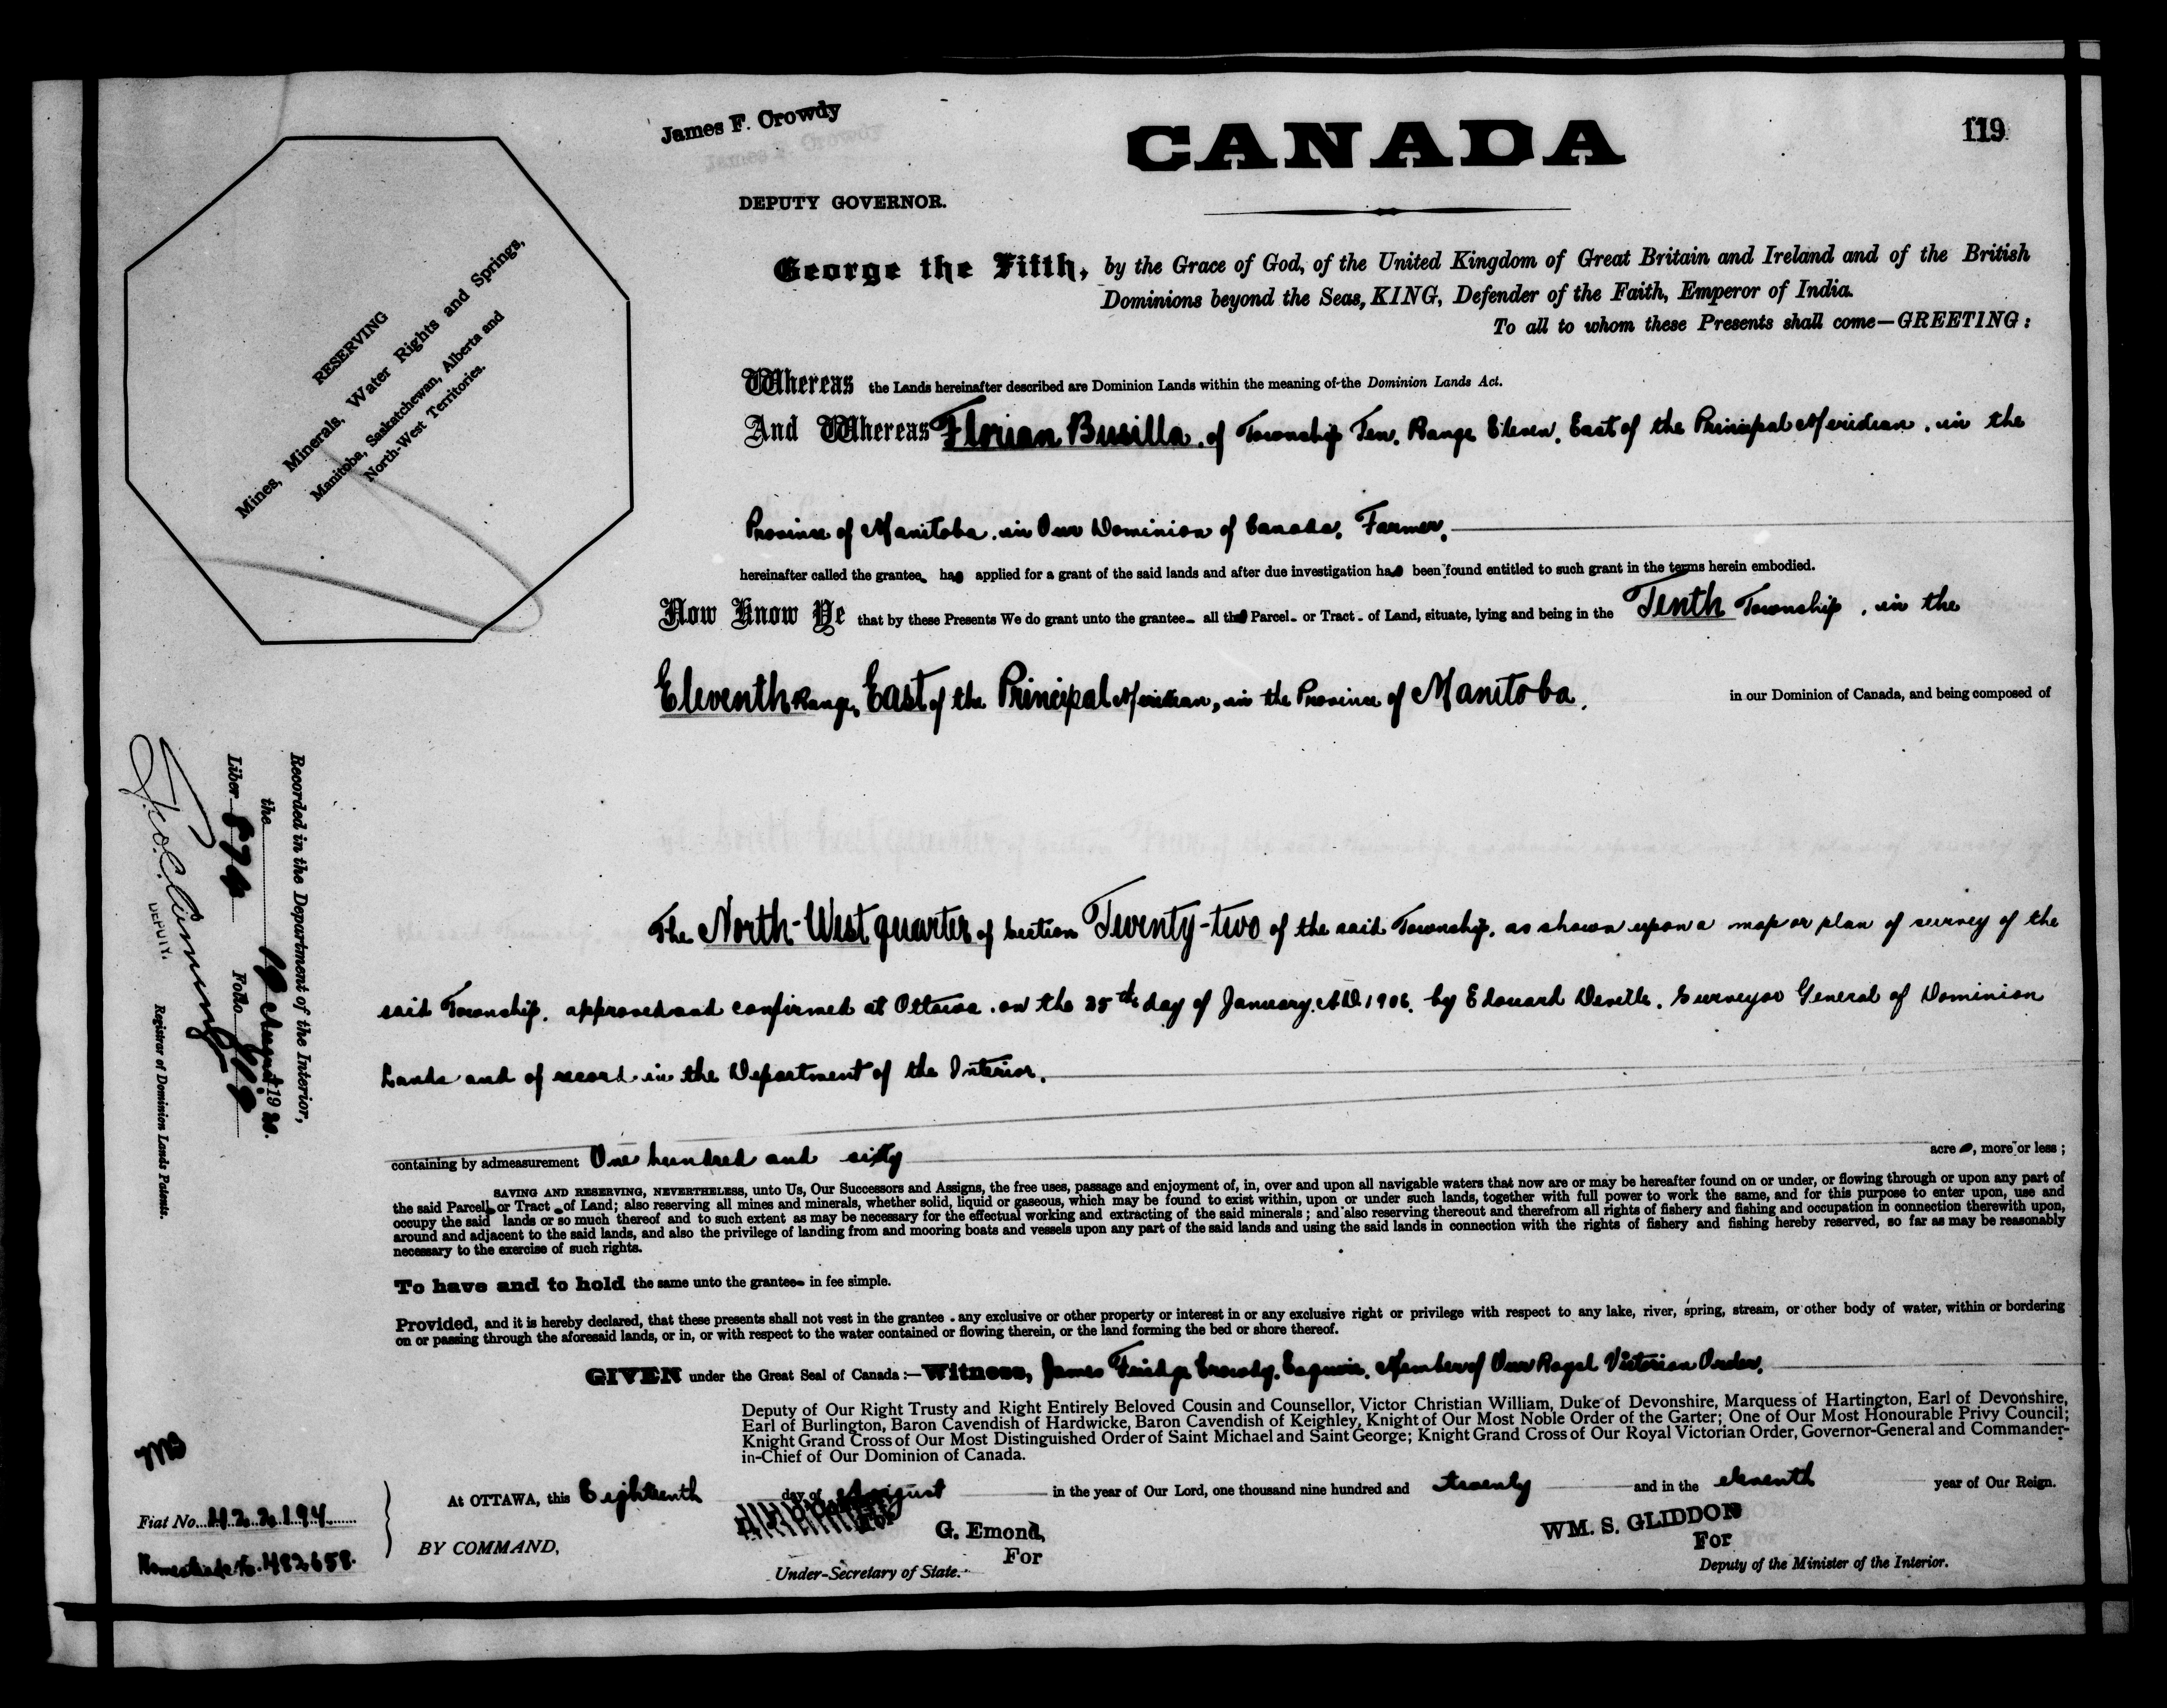 James F. Crowdy
CANADA
119
DEPUTY GOVERNOR.
George the Fifth, by the Grace of God, of the United Kingdom of Great Britain and Ireland and of the British
Dominions beyond the Seas, KING, Defender of the Faith, Emperor of India.
To all to whom these Presents shall come—GREETING:
RESERVING
Mines, Minerals, Water Rights and Springs,
Manitoba, Saskatchewan, Alberta and
North-West Territories.
Whereas the Lands hereinafter described are Dominion Lands within the meaning of the Dominion Lands Act.
And Whereas Florian Busilla, of Township Ten, Range Eleven, East of the Principal Meridian, in the
Province of Manitoba, in Our Dominion of Canada, Farmer,
hereinafter called the grantee, has applied for a grant of the said lands and after due investigation has been found entitled to such grant in the terms herein embodied.
Now Know Ye that by these Presents We do grant unto the grantee all that Parcel or Tract of Land, situate, lying and being in the Tenth Township, in the
Eleventh Range, East of the Principal Meridian, in the Province of Manitoba, in our Dominion of Canada, and being composed of
The North-West quarter of Section Twenty-two of the said Township, as shown upon a map or plan of survey of the
said Township, approved and confirmed at Ottawa, on the 25th day of January, A.D. 1906, by Edouard Deville, Surveyor General of Dominion
Lands and of record in the Department of the Interior.
containing by admeasurement One hundred and sixty acres, more or less;
SAVING AND RESERVING, NEVERTHELESS, unto Us, Our Successors and Assigns, the free uses, passage and enjoyment of, in, over and upon all navigable waters that now are or may be hereafter found on or under, or flowing through or upon any part of
the said Parcel or Tract of Land; also reserving all mines and minerals, whether solid, liquid or gaseous, which may be found to exist within, upon or under such lands, together with full power to work the same, and for this purpose to enter upon, use and
occupy the said lands or so much thereof and to such extent as may be necessary for the effectual working and extracting of the said minerals; and also reserving thereout and therefrom all rights of fishery and fishing and occupation in connection therewith upon,
around and adjacent to the said lands, and also the privilege of landing from and mooring boats and vessels upon any part of the said lands and using the said lands in connection with the rights of fishery and fishing hereby reserved, so far as may be reasonably
necessary to the exercise of such rights.
To have and to hold the same unto the grantee in fee simple.
Provided, and it is hereby declared, that these presents shall not vest in the grantee any exclusive or other property or interest in or any exclusive right or privilege with respect to any lake, river, spring, stream, or other body of water, within or bordering
on or passing through the aforesaid lands, or in, or with respect to the water contained or flowing therein, or the land forming the bed or shore thereof.
GIVEN under the Great Seal of Canada:—Witness, James Crowdy, Esquire, Member of Our Royal Victorian Order,
Deputy of Our Right Trusty and Right Entirely Beloved Cousin and Counsellor, Victor Christian William, Duke of Devonshire, Marquess of Hartington, Earl of Devonshire,
Earl of Burlington, Baron Cavendish of Hardwicke, Baron Cavendish of Keighley, Knight of Our Most Noble Order of the Garter; One of Our Most Honourable Privy Council;
Knight Grand Cross of Our Most Distinguished Order of Saint Michael and Saint George; Knight Grand Cross of Our Royal Victorian Order, Governor-General and Commander-
in-Chief of Our Dominion of Canada.
At OTTAWA, this Eighteenth day of August in the year of Our Lord, one thousand nine hundred and twenty and in the eleventh year of Our Reign.
BY COMMAND,
G. Emond,
For
Under-Secretary of State.
WM. S. GLIDDON
For
Deputy of the Minister of the Interior.
Recorded in the Department of the Interior,
the 19 August 1920.
Liber 574 Folio 119
DEPUTY.
Registrar of Dominion Lands Patents.
Fiat No. 422194
Homestead No. 482658.